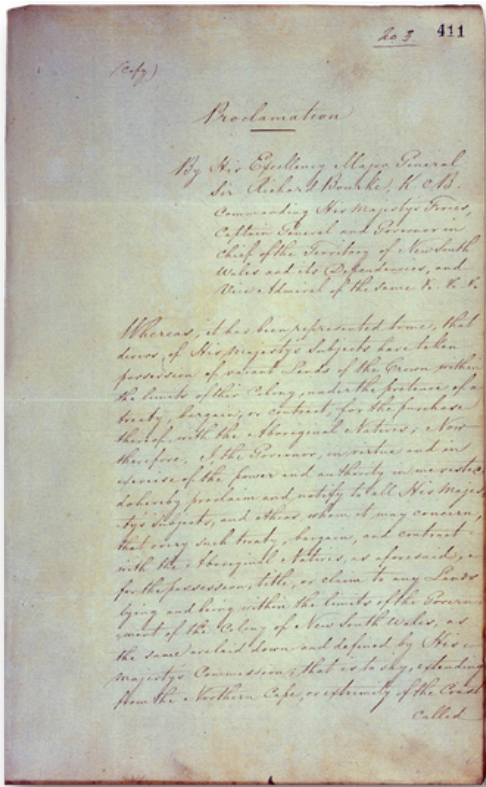 No 3 411
(Copy)
Proclamation
By His Excellency Major General
Sir Richard Bourke, K. C.B.
Commanding His Majesty's Forces,
Captain General and Governor in
Chief of the Territory of New South
Wales and its Dependencies, and
Vice Admiral of the same &c. &c. &c.
Whereas, it has been represented to me, that
divers, of His Majesty's Subjects have taken
possession of vacant Lands of the Crown within
the limits of this Colony, under the pretence of a
treaty, bargain, or contract, for the purchase
thereof, with the Aboriginal Natives; Now
therefore, I the Governor, in virtue and in
exercise of the power and authority in me vested,
do hereby proclaim and notify to all His Majes-
ty's Subjects, and others whom it may concern,
that every such treaty, bargain, and contract
with the Aboriginal Natives, as aforesaid,
for the possession, title, or claim to any Lands
lying and being within the limits of the Govern-
ment of the Colony of New South Wales, as
the same are laid down and defined by His
Majesty's Commission; that is to say, extending
from the Northern Cape, or extremity of the Coast
called